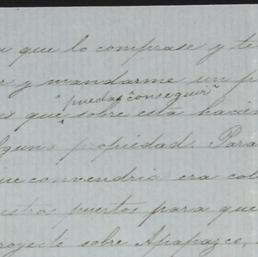 que lo comprase y te
y mandarme un p
"puedas conseguir"
es que sobre esta hacien
lguna propiedad. Para
ue convendria era col
estra puertos para que
royecto sobre Apapazco,